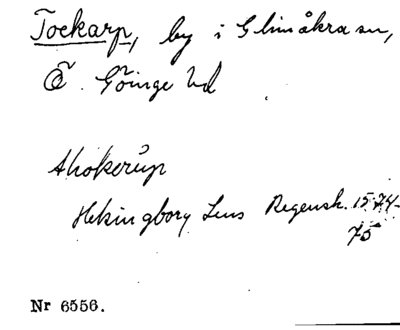 Toekarp, by i Glimåkra sn,
Ö. Göinge hd
Akokerup
Helsingborg Lens Regensk. 1574-
75
Nr 6556.